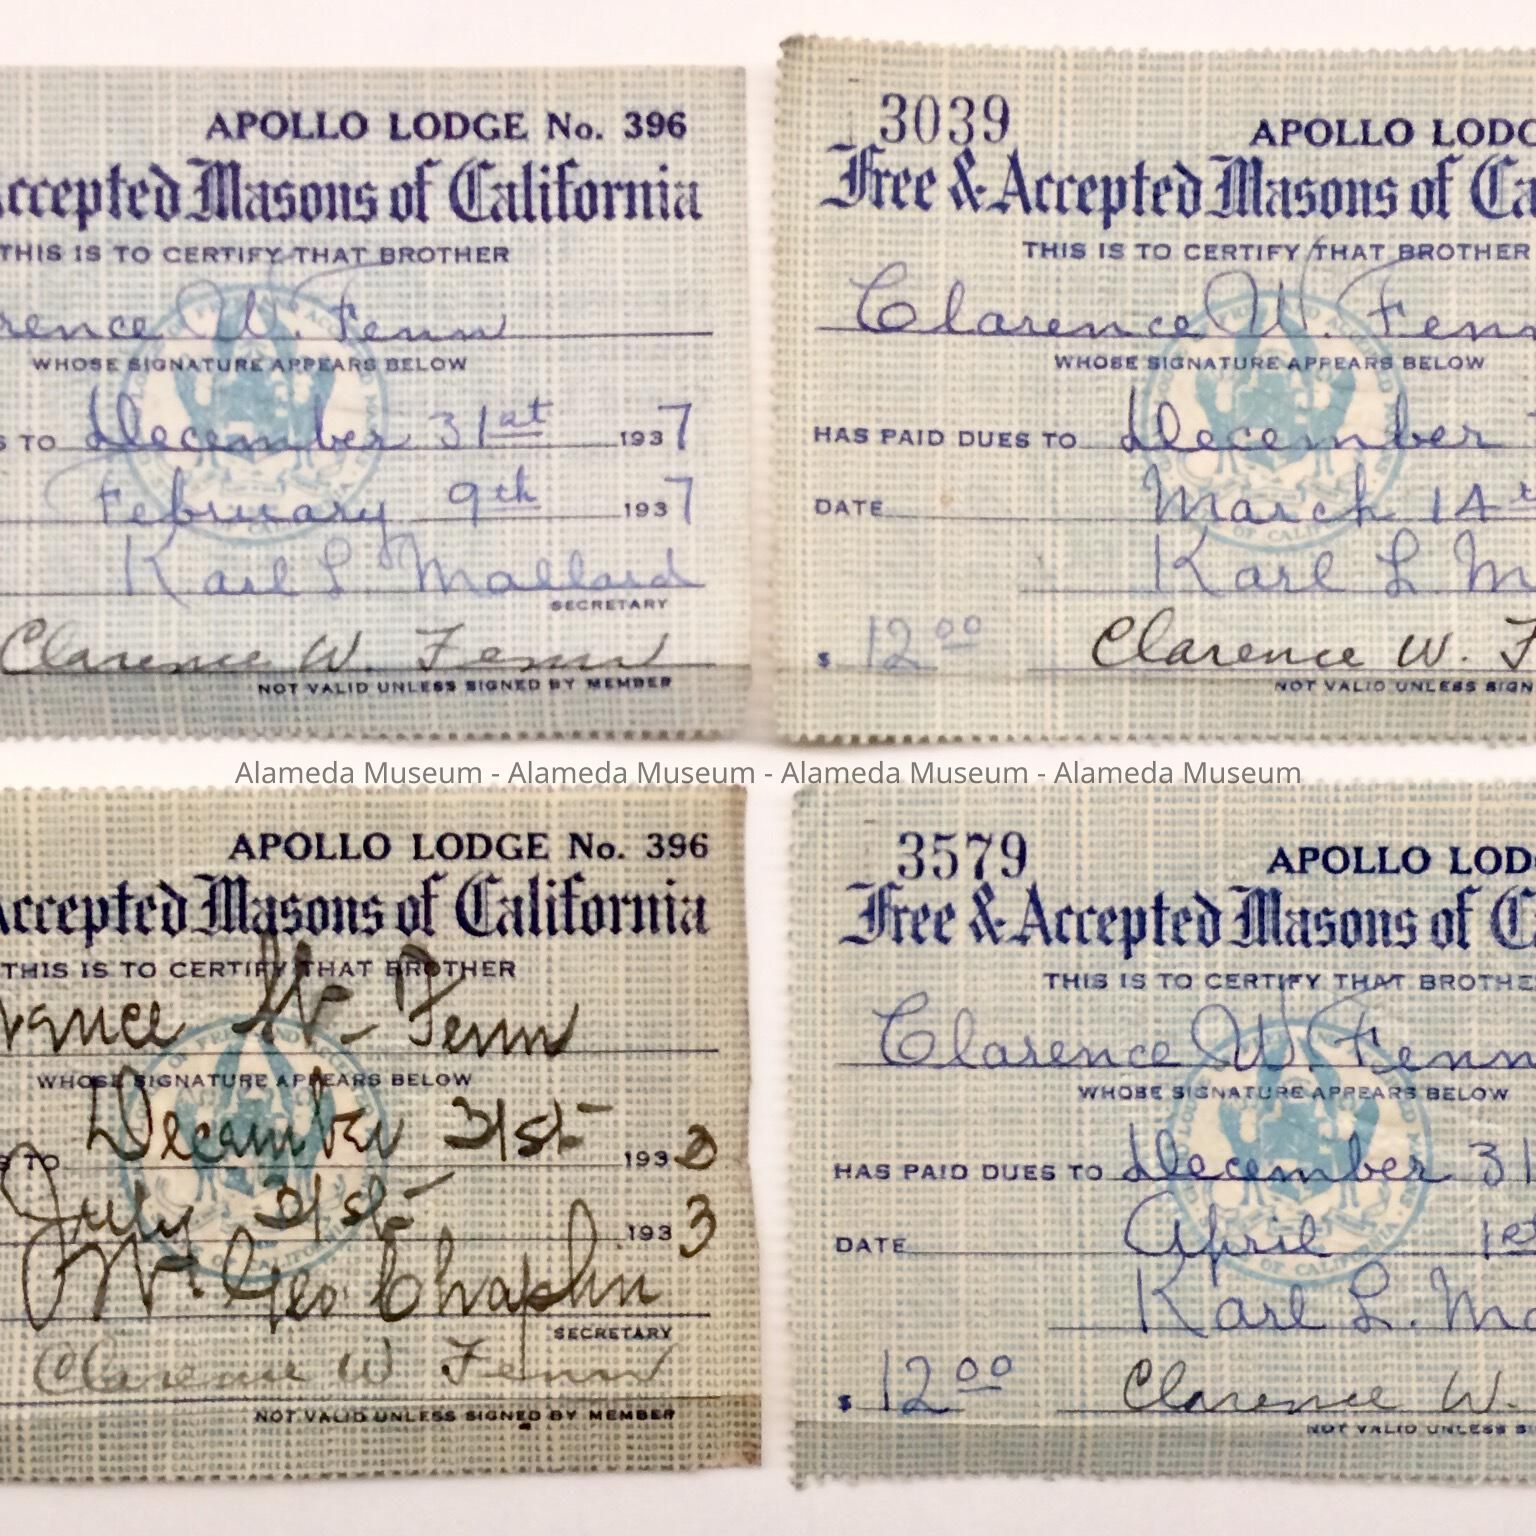 APOLLO LODGE No. 396
Accepted Masons of California
THIS IS TO CERTIFY THAT BROTHER
rence W. Fenn
WHOSE SIGNATURE APPEARS BELOW
S TO December 31st 1937
February 9th 1937
Karl L. Mallard
SECRETARY
Clarence W. Fenn
NOT VALID UNLESS SIGNED BY MEMBER
3039
APOLLO LODG
Free & Accepted Masons of Ca
THIS IS TO CERTIFY THAT BROTHER
Clarence W. Fenn
WHOSE SIGNATURE APPEARS BELOW
HAS PAID DUES TO December
DATE March 14
Karl L. M
$ 12 00
Clarence W. F
NOT VALID UNLESS SIGN
Alameda Museum - Alameda Museum - Alameda Museum - Alameda Museum
APOLLO LODGE No. 396
Accepted Masons of California
THIS IS TO CERTIFY THAT BROTHER
W. Fenn
WHOSE SIGNATURE APPEARS BELOW
S TO December 31st 193
July 31st 1933
Wm Geo. Chaplin
SECRETARY
Clarence W Fenn
NOT VALID UNLESS SIGNED BY MEMBER
3579
APOLLO LOD
Free & Accepted Masons of C
THIS IS TO CERTIFY THAT BROTHE
Clarence W Fenn
WHOSE SIGNATURE APPEARS BELOW
HAS PAID DUES TO December 31
DATE April 1st
Karl L. Ma
$ 12 00
Clarence W.
NOT VALID UNLESS SI